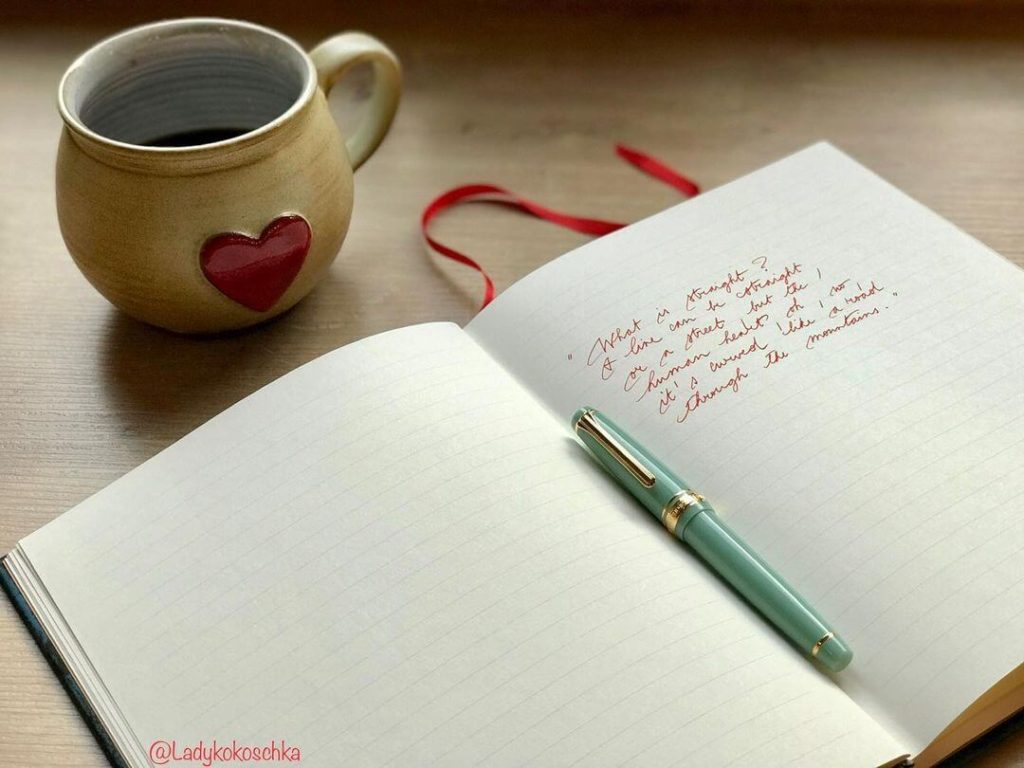 "What is straight?
A line can be straight
or a street, but the
human heart, oh, no,
it's curved like a road
through the mountains."
@Ladykokoschka